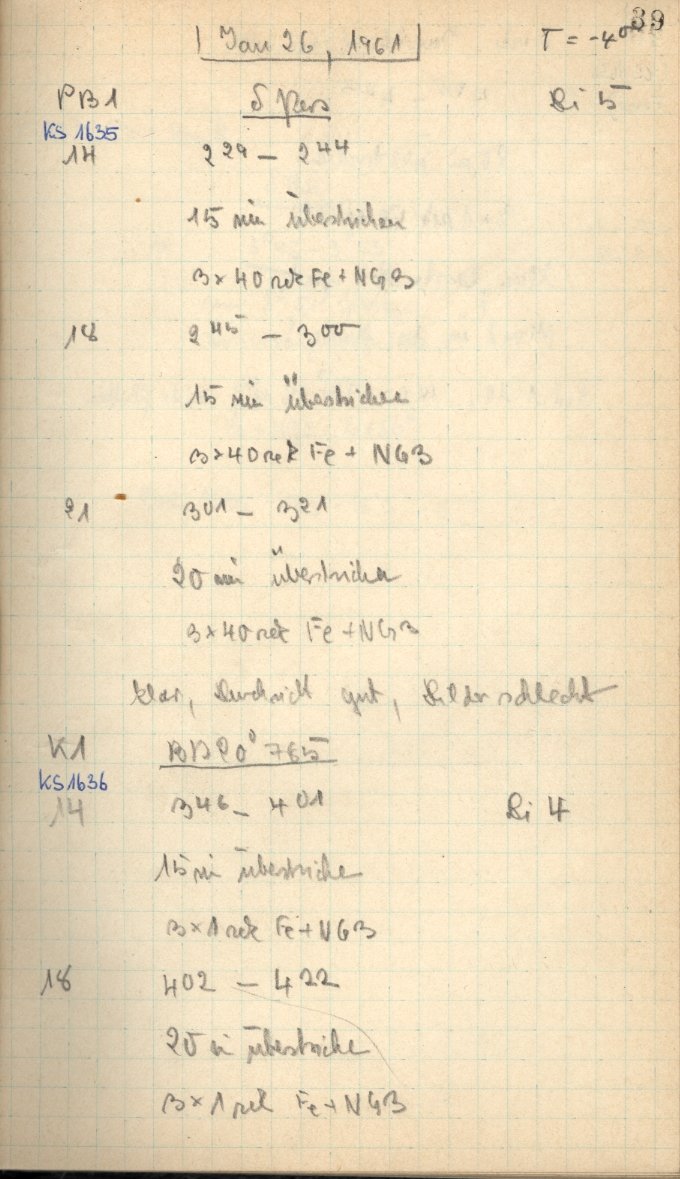 39
Jan 26, 1961 T = -4°
PB1 δ Pers Bi 5
KS 1635
14 2 29 – 2 44
15 min überstrichen
3×40 sek Fe + NG3
18 2 45 – 3 00
15 min überstrichen
3×40 sek Fe + NG3
21 3 01 – 3 21
20 min überstrichen
3×40 sek Fe + NG3
klar, Durchsicht gut, Bilder schlecht
K1 BD +0° 765
KS 1636
14 3 46 – 4 01 Bi 4
15 min überstriche
3×1 sek Fe + NG3
18 4 02 – 4 22
20 min überstriche
3×1 sek Fe + NG3